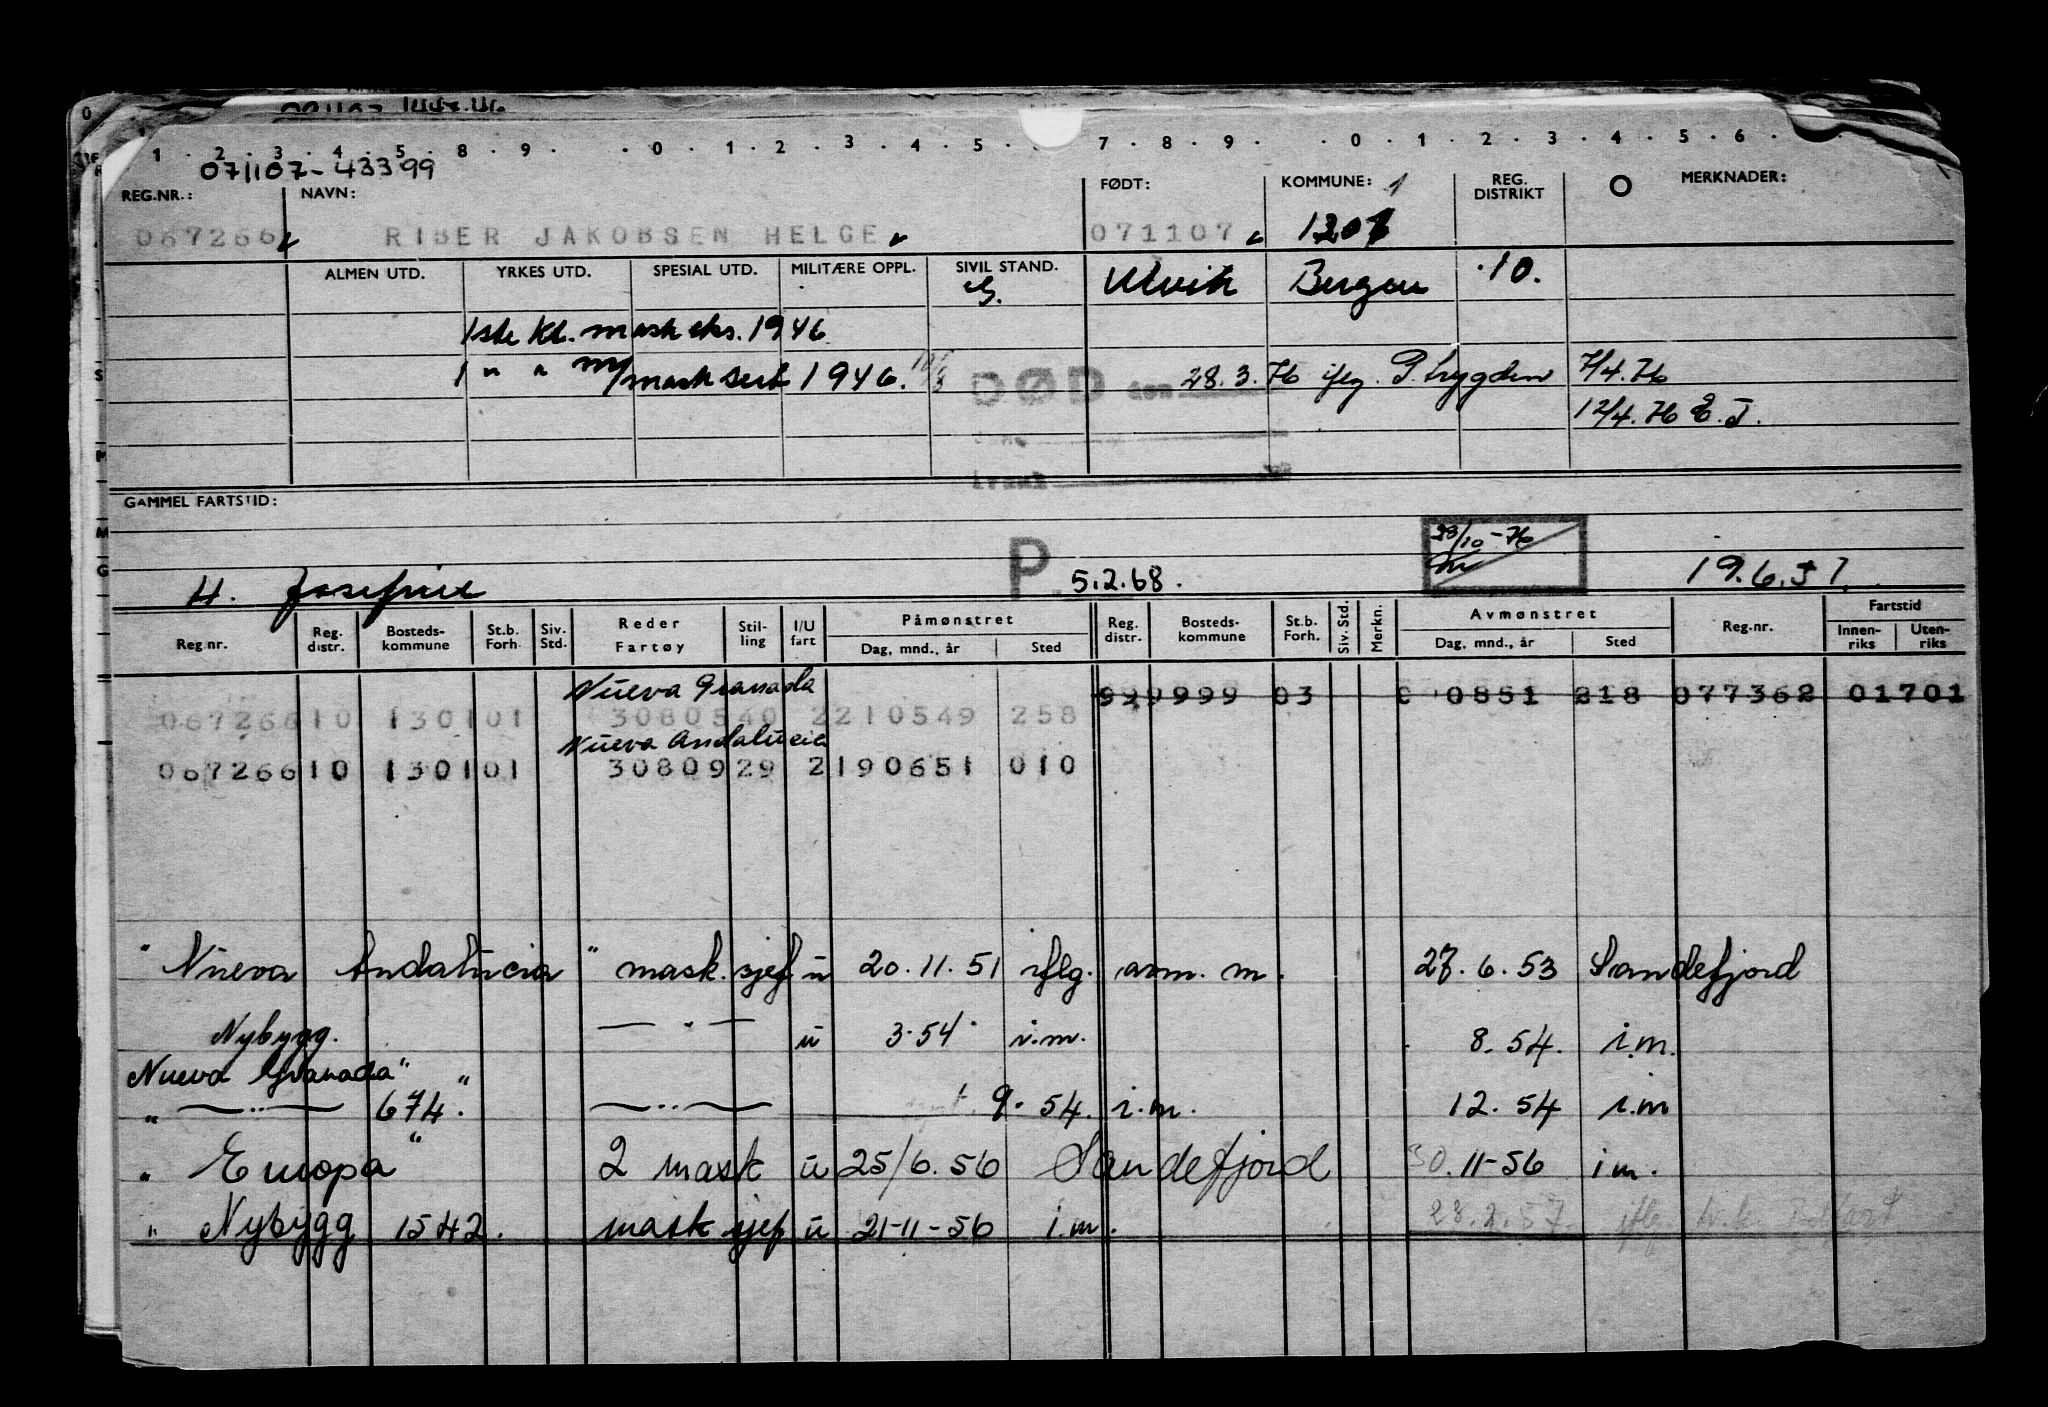 1 . 2 . 3 . 4 . 5 . 8 . 9 . . 0 . 1 . 2 . 3 . 4 . 5 . 7 . 8 . 9 . . 0 . 1 . 2 . 3 . 4 . 5 . 6 .
071107-43399
REG.NR.: NAVN: FØDT: KOMMUNE: 1 REG. DISTRIKT MERKNADER:
067266 RIBER JAKOBSEN HELGE 071107 1301
ALMEN UTD. YRKES UTD. SPESIAL UTD. MILITÆRE OPPL. SIVIL STAND. Ulvik Bergen 10.
G.
1ste kl. mask eks. 1946
1 " " m/mask sert 1946.
DØD den 28.3.76 iflg. P. trygden 7/4.76
12/4.76 E.J.
GAMMEL FARTSTID:
28/10-76
H. Josefine P 5.2.68. 19.6.51.
Reg.nr. Reg. distr. Bosteds-kommune St.b. Forh. Siv. Std. Reder Fartøy Stil-ling I/U fart Påmønstret Dag, mnd., år Sted Reg. distr. Bosteds-kommune St.b. Forh. Siv. Std. Merkn. Avmønstret Dag, mnd., år Sted Reg.nr. Fartstid Innen-riks Uten-riks
Nueva Granada 999999 03 0851 218 077362 01701
06726610 130101 3080540 2210549 258
Nueva Andalucia
06726610 130101 3080929 2190651 010
" Nueva Andalucia " mask. sjef u 20.11.51 iflg. avm. m. 27.6.53 Sandefjord
Nybygg. — " — u 3.54 i.m. 8.54. i.m.
Nueva Granada"
" — " — 674. " — " — 9.54. i.m. 12.54 i.m
" Europa " 2 mask u 25/6.56 Sandefjord 30.11-56 i m.
" Nybygg 1542. mask sjef u 21-11-56 i.m. 28.2.57. iflg